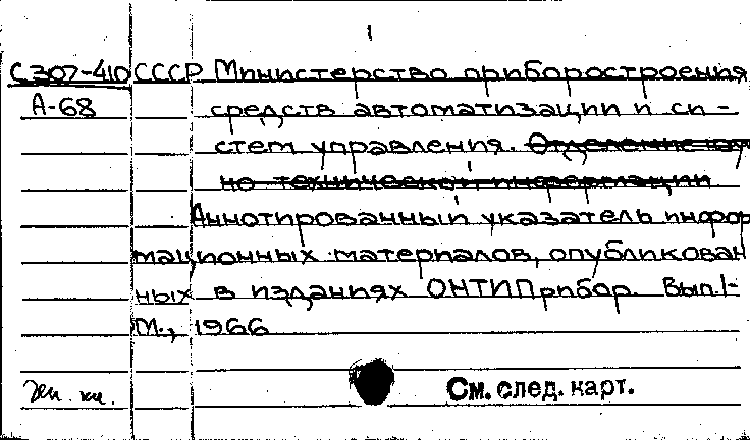 1
С307-410 СССР Министерство приборостроения
А-68 средств автоматизации и си-
стем управления. Отделение науч
но технической информации
Аннотированный указатель инфор
мационных материалов, опубликован
ных в изданиях ОНТИПрибор. Вып.1-
М., 1966
См. след. карт.